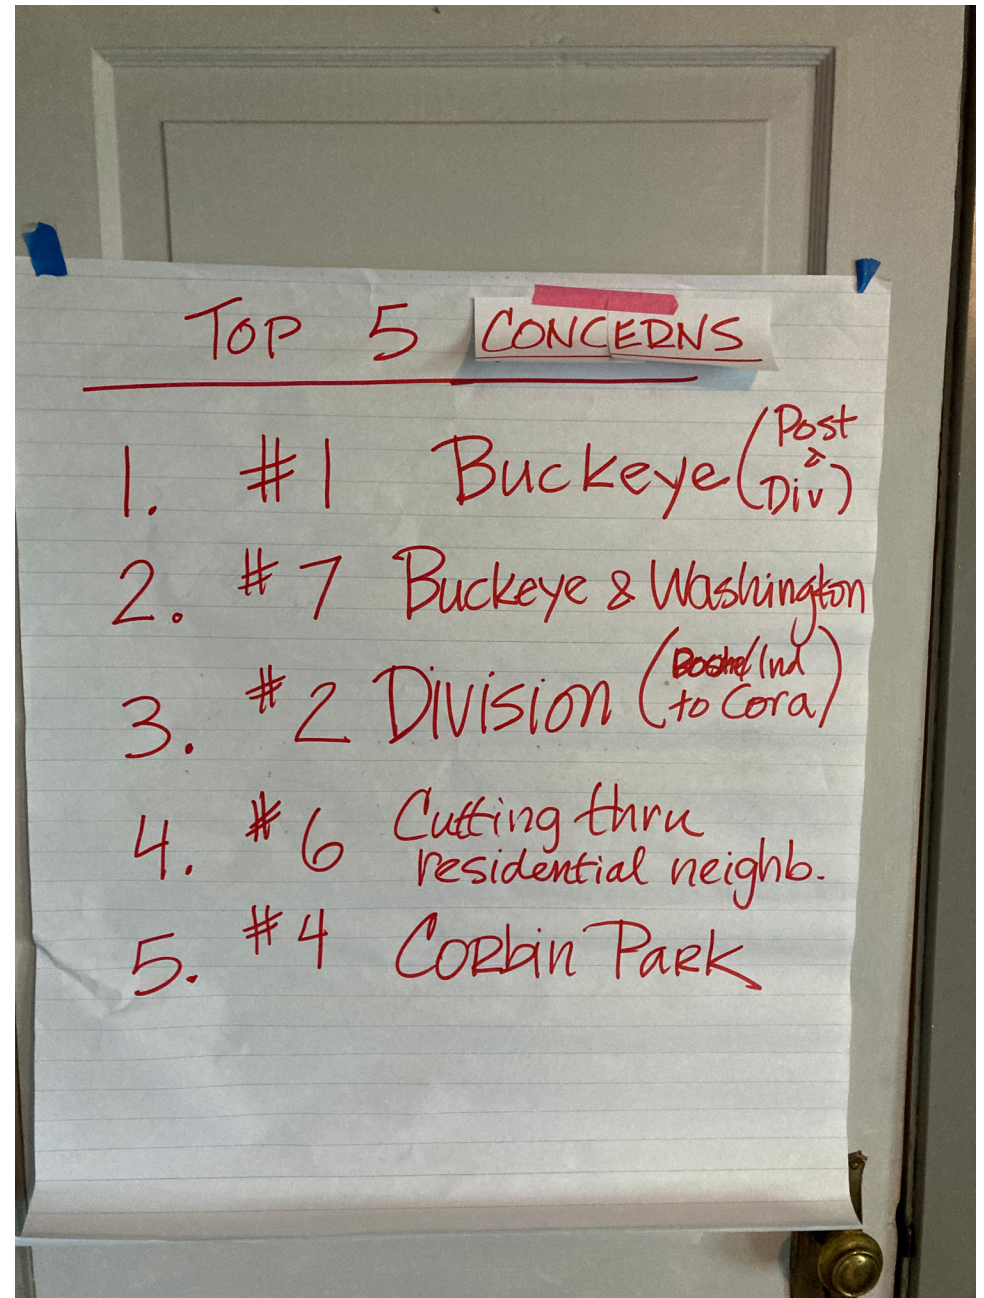 TOP 5 CONCERNS
1. #1 Buckeye (Post & Div)
2. #7 Buckeye & Washington
3. #2 Division (/Ind to Cora)
4. #6 Cutting thru
residential neighb.
5. #4 Corbin Park